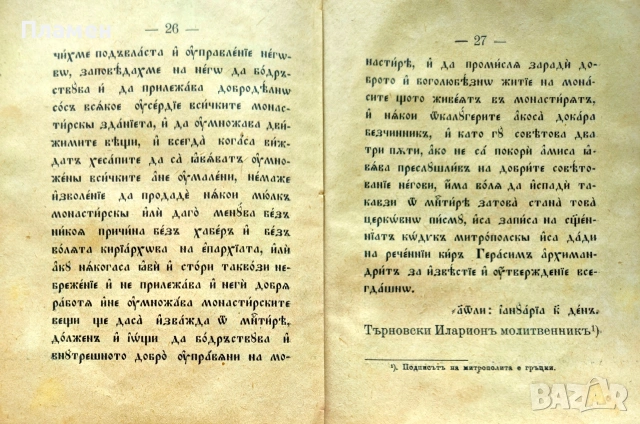 Пламен
— 26 —
чи́хме подъвласта и҆ ᲂу҆правле́нїе не́гѡ-
вѡ, заповѣ́дахме на не́гѡ да бо́дръ-
ствува и҆ да прилежа́ва доброде́лнѡ
со́съ вся́кое ᲂу҆се́рдїе вси́чките монас-
ти́рскы зда́нїета, и҆ да ᲂу҆множа́ва дви́-
жимите ве́щи, и҆ всегда̀ кога́са ви́ж-
датъ хеса́пите да са̀ ꙗ҆вѧ́ватъ ᲂу҆мно-
же́ны вси́чките а҆не ᲂу҆мале́ни, нема́же
и҆зволе́нїе да прода́де нѧ́кои мю́лкъ
монасти́рскы и҆лѝ даго̀ мену́ва бе́зъ
ни́коѧ причи́на бе́зъ хабе́ръ и҆ бе́зъ
во́лѧта кирїа́рхѡва на є҆па́рхїата, и҆лѝ
а҆́кѹ нѧ́когаса ꙗ҆вѝ и҆ сто́ри такво́зи не-
бреже́нїе и҆ не прилежа́ва и҆ не́ги добрѧ
рабо́тѧ и҆не ᲂу҆множа́ва монасти́рските
вещи ще даса̀ и҆зва́жда ѿ мн҃ти́ре,
до́лженъ и҆ і҆́ѡщи да бо́дръствува и҆
внꙋ́трешното добро̀ ᲂу҆пра́вѧни на мо-
— 27 —
насти́ре, и҆ да проми́слѧ зарадѝ до-
бро́то и҆ боголюбе́знѡ житїе на мона́-
сите що́то живе́ѧтъ въ монасти́рѧтъ,
и҆ нѧ́кои ѿкалꙋ́герите а҆́коса дока́ра
безчи́нникъ, и҆ като гꙋ̀ совѣ́това два
три пѫ́ти, а҆́ко не са̀ покори̇̀ а҆́миса ꙗ҆-
вѧ́ва преслꙋшли́въ на до́брите совѣ́то-
ванїе не́гови, и҆́ма во́лѧ да и҆спа́ди та-
ка́взи ѿ мн҃ти́ре затова̀ стана̀ това̀
церко́внѡ писмо̀, и҆са̀ запи́са на сщ҃е́н-
нїатъ кѡ́дꙋкъ митропо́лскы и҆са̀ да́ди
на рече́ннїи ки́ръ Гера́симъ а҆рхиман-
дри́тъ за и҆звѣ́стїе и҆ ᲂу҆твержде́нїе все-
гда́шнѡ.
҂аѿли: і҆анꙋа́рїа к҃ де́нъ.
Търновски Иларионъ молитвенникъ¹).
¹). Подписътъ на митрополита е гръцки.
BAZAR
bg